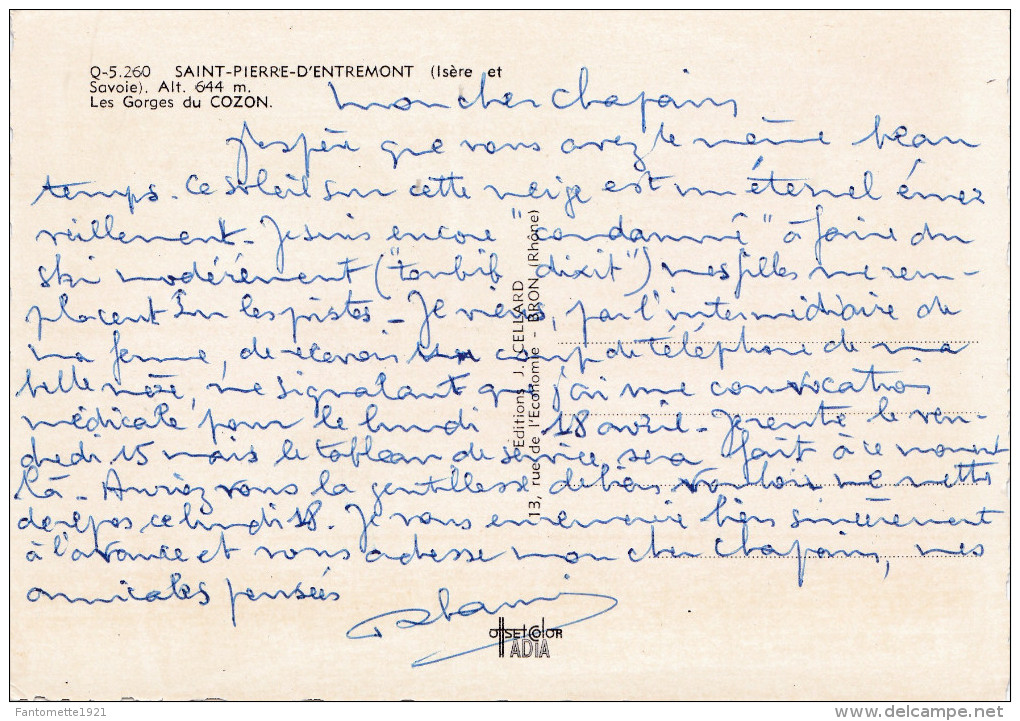 Q-5.260 SAINT-PIERRE-D'ENTREMONT (Isère et
Savoie). Alt. 644 m.
Les Gorges du COZON.
Mon cher Chapain,
J'espère que vous avez le même beau
temps. Ce soleil sur cette neige est un éternel émer
veillement. Je suis encore "condamné" à faire du
ski modérément ("toubib dixit") mes filles me rem-
placent sur les pistes. Je viens, par l'intermédiaire de
ma femme, de recevoir un coup de téléphone de ma
belle mère, me signalant que j'ai une convocation
médicale pour le lundi 18 avril. Je rentre le ven-
dredi 15 mais le tableau de service sera fait à ce moment
là. Auriez vous la gentillesse de bien vouloir me mettre
de repos ce lundi 18. Je vous en remercie bien sincèrement
à l'avance et vous adresse mon cher Chapain, mes
amicales pensées
Editions J. CELLARD
113, rue de l'Economie - BRON (Rhône)
OFFSETCOLOR
IADIA
Fantomette1921
delcampe.net